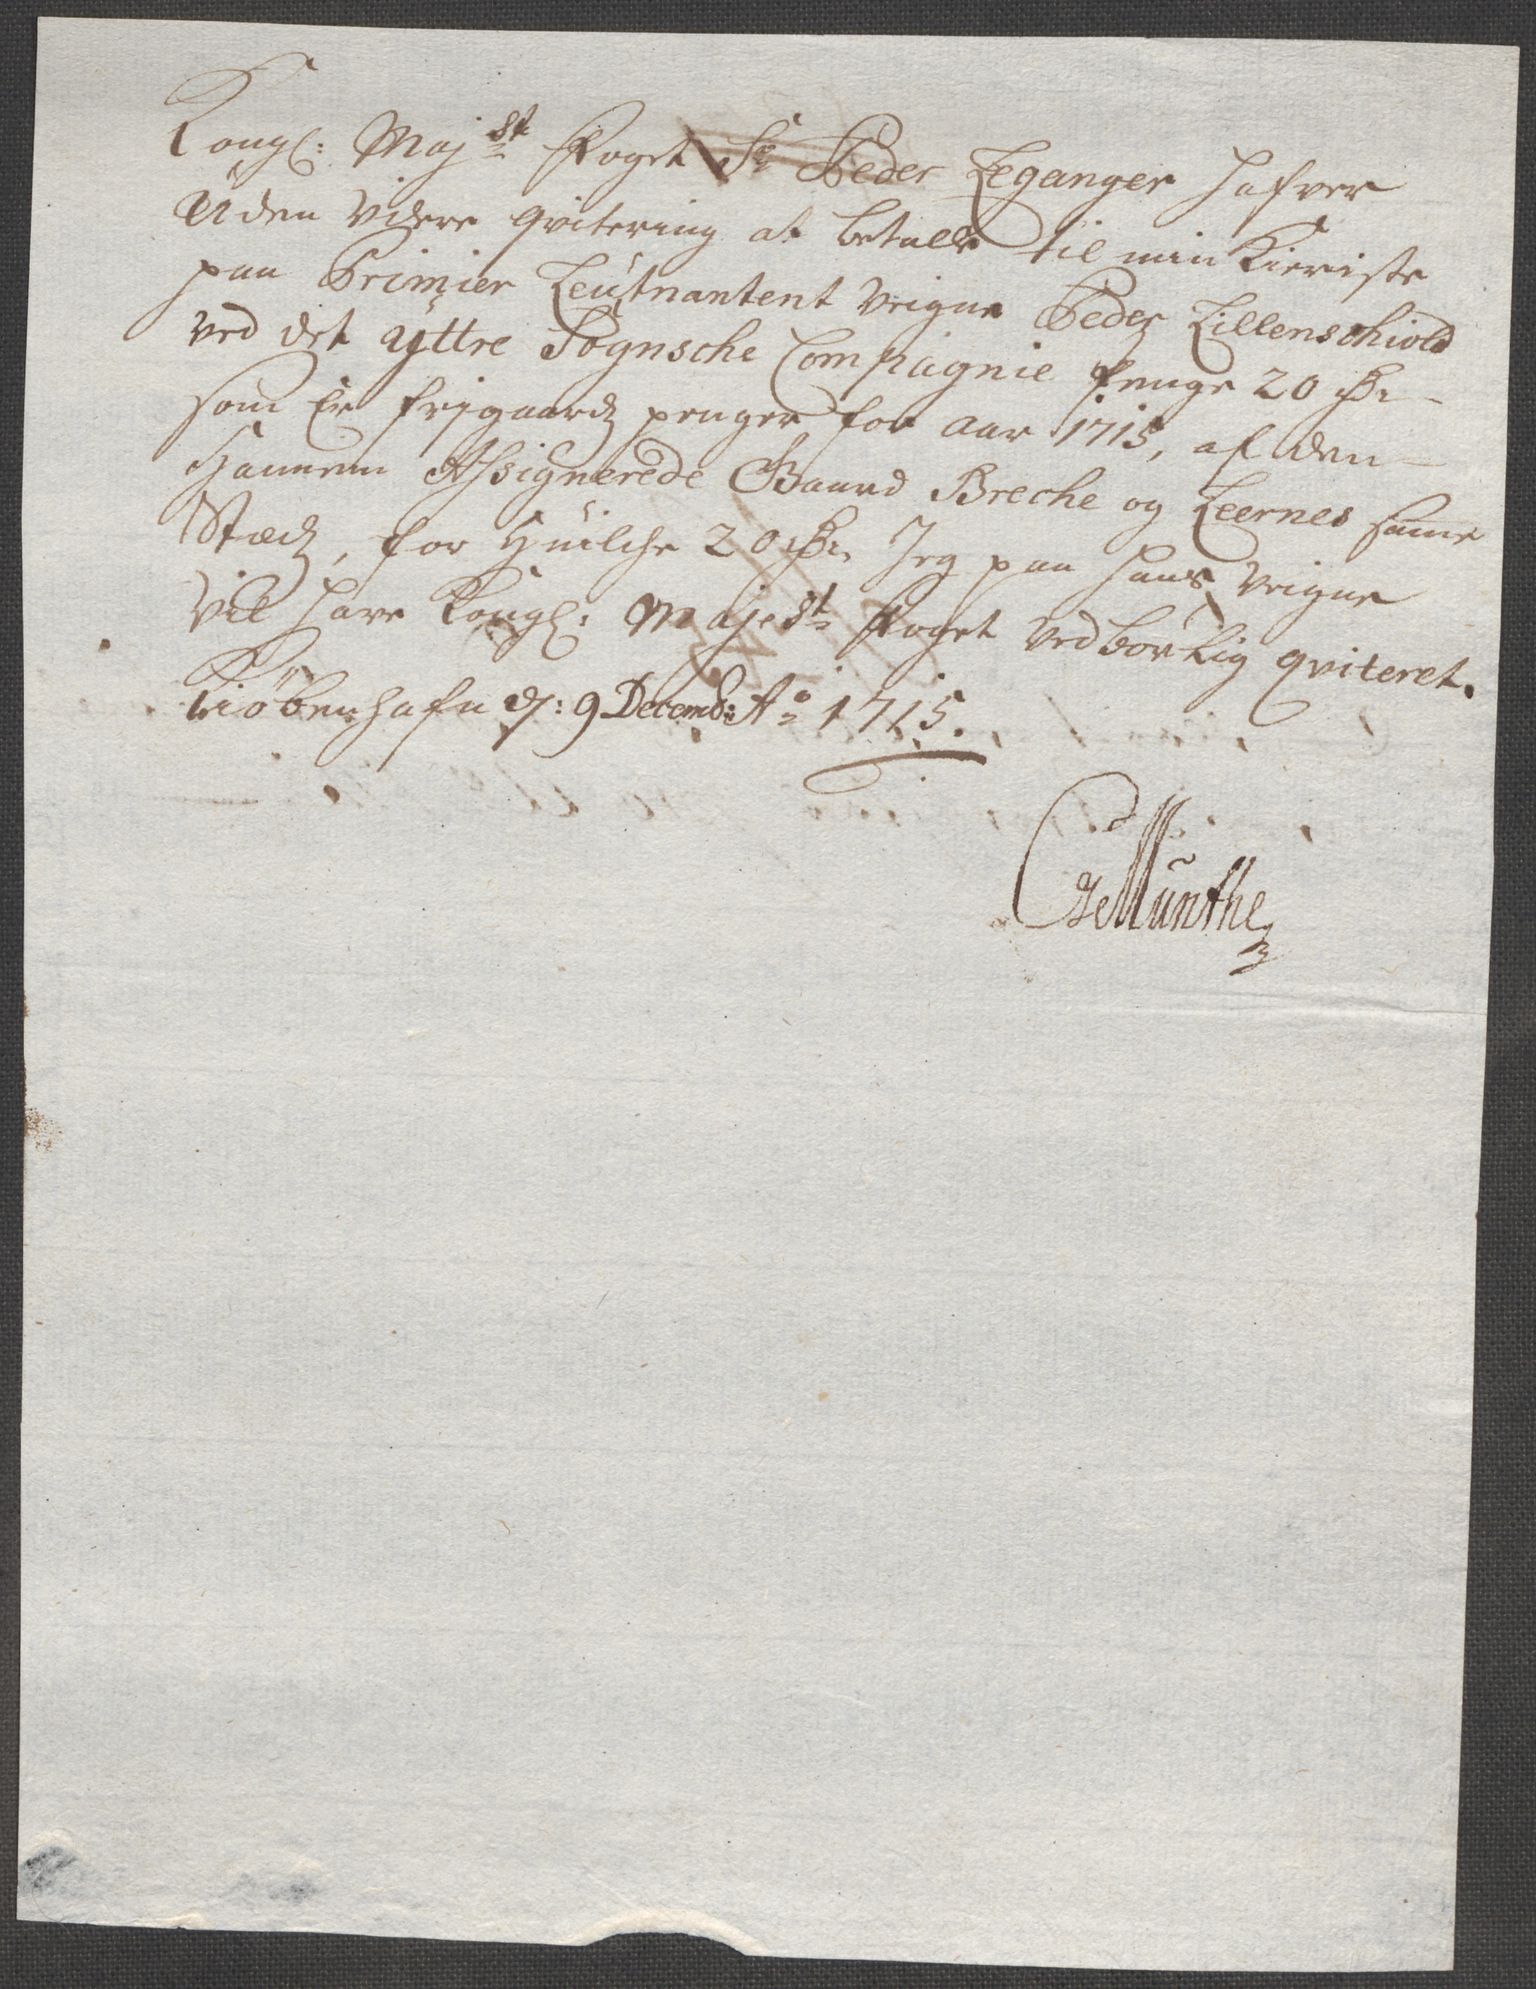 Kongl: Maj:st Foget Sr Peder Leganger hafver
Uden videre qvitering at betalle til min Kieriste
paa Primier Leutnantent veigne Peder Lillenschiold
ved det Yttre Sognsche Compagnie penge 20 Rdr
som Er frjgaards penger for Aar 1715, af den
Hannem Assignerede Gaard Breche og Leernes samme
Stædz, for Huilche 20 Rdr Jeg paa hans veigne
vil have Kongl: Majestz Foget vedborlig qviteret.
Kiøbenhafn d: 9 Decemb: Ao 1715.
GeMunthe